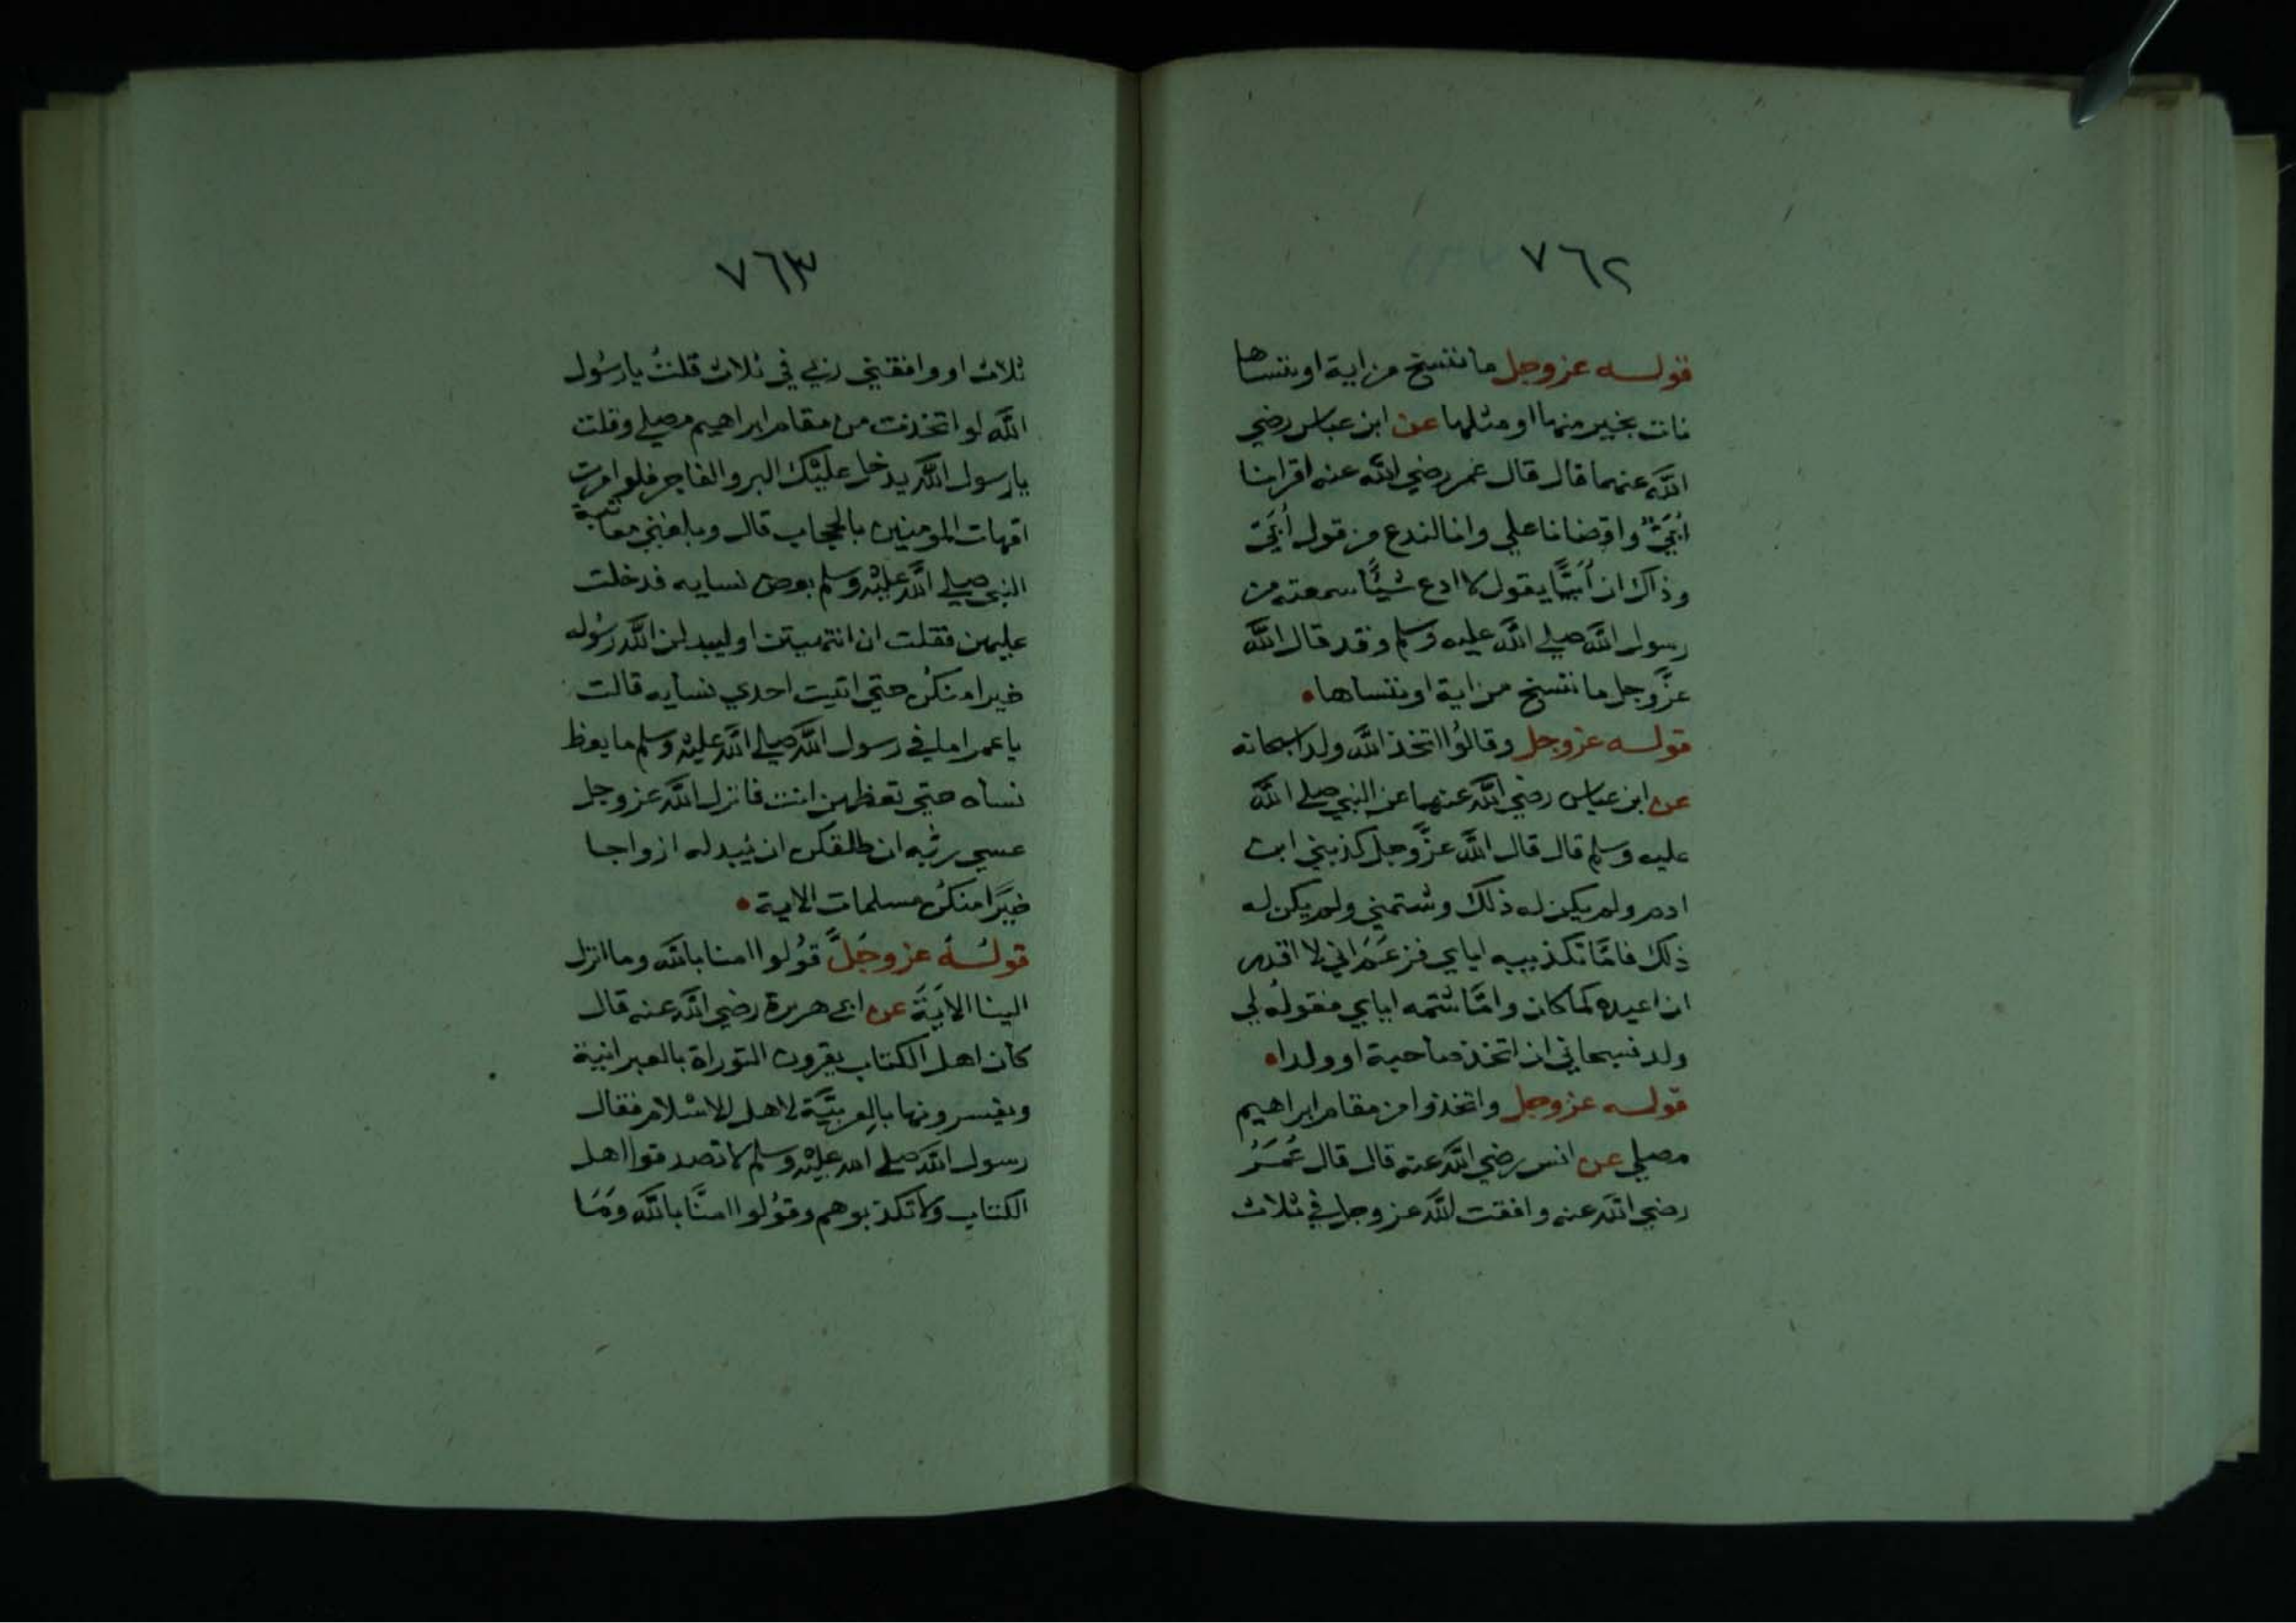 ٧٦٢
قولـه عز وجل ما ننسخ من اية او ننساها
نات بخير منها او مثلها عن ابن عباس رضي
الله عنهما قال قال عمر رضي الله عنه اقرانا
أُبَيّ واقضانا علي وانا لندع من قول أُبَيّ
وذاك ان أُبَيًّا يقول لا ادع شيًا سمعته من
رسول الله صلي الله عليه وسلم وقد قال الله
عزَّ وجل ما ننسخ من اية او ننساها
قولـه عز وجل وقالُوا اتخذ الله ولدا سبحانه
عن ابن عباس رضي الله عنهما عن النبي صلي الله
عليه وسلم قال قال الله عزَّ وجل كذبني ابن
ادم ولم يكن له ذلك وشتمني ولم يكن له
ذلك فامَّا تكذيبه اياي فزعَمَ اني لا اقدر
ان اعيده كما كان وامَّا شتمه اياي فقولُه لي
ولد فسبحاني ان اتخذ صاحبة او ولدا
قولـه عز وجل واتخذوا من مقام ابراهيم
مصلي عن انس رضي الله عنه قال قال عُمَرُ
رضي الله عنه وافقت الله عز وجل في ثلاث
٧٦٣
ثلاث او وافقني ربي في ثلاث قلتُ يا رسُول
الله لو اتخذت من مقام ابراهيم مصلي وقلت
يا رسول الله يدخل عليْك البر والفاجر فلو امرت
امّهات المومنين بالحجاب قال وبلغني معاتبة
النبي صلي الله عليْه وسلم بعض نسايه فدخلت
عليهن فقلت ان انتهيتن او ليبدلن الله رسُوله
خيرا منكُن حتي اتيت احدي نسايه قالت
يا عمر اما في رسول الله صلي الله عليْه وسلم ما يعظ
نساه حتي تعظهن انت فانزل الله عز وجل
عسي ربُّه ان طلقكن ان يُبدله ازواجا
خيرًا منكُن مسلمات الاية
قولـهُ عز وجَلَّ قُولُوا امنا بالله وما انزل
الينا الايَةَ عن ابي هريرة رضي الله عنه قال
كان اهل الكتاب يقرون التوراة بالعبرانية
ويفسرونها بالعربيَّة لاهل الاسْلام فقال
رسول الله صلي الله عليْه وسلم لا تصدقوا اهل
الكتاب ولا تكذبوهم وقوُلوا امنَّا بالله ومَا